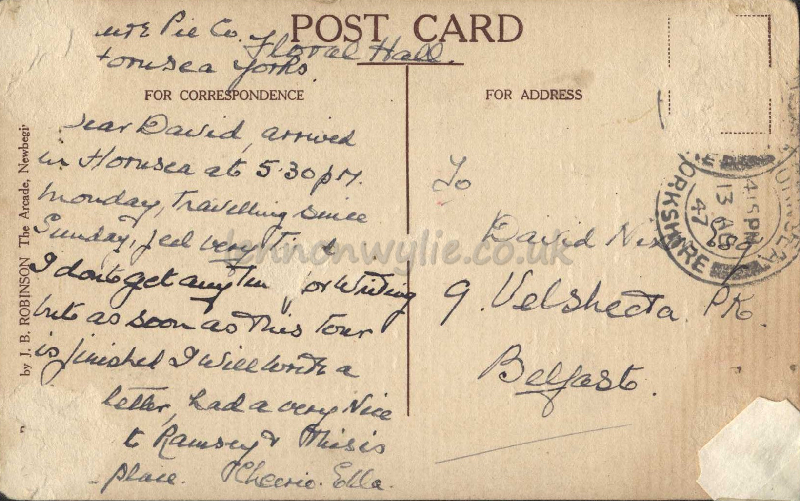 POST CARD
Pie Co. Floral Hall.
Hornsea Yorks.
FOR CORRESPONDENCE
FOR ADDRESS
Dear David, arrived
in Hornsea at 5.30 p.m.
Monday, travelling since
Sunday, feel very
I dont get any for writing
but as soon as this Tour
is finished I will write a
letter, had a very Nice
to Ramsey & this is
place. Cheerio. Ella.
by J. B. ROBINSON The Arcade, Newbegi
To
David
9. Velsheda. PK.
Belfast.
HORNSEA
YORKSHIRE
4:15 PM
13 AUG
47
lennonwylie.co.uk